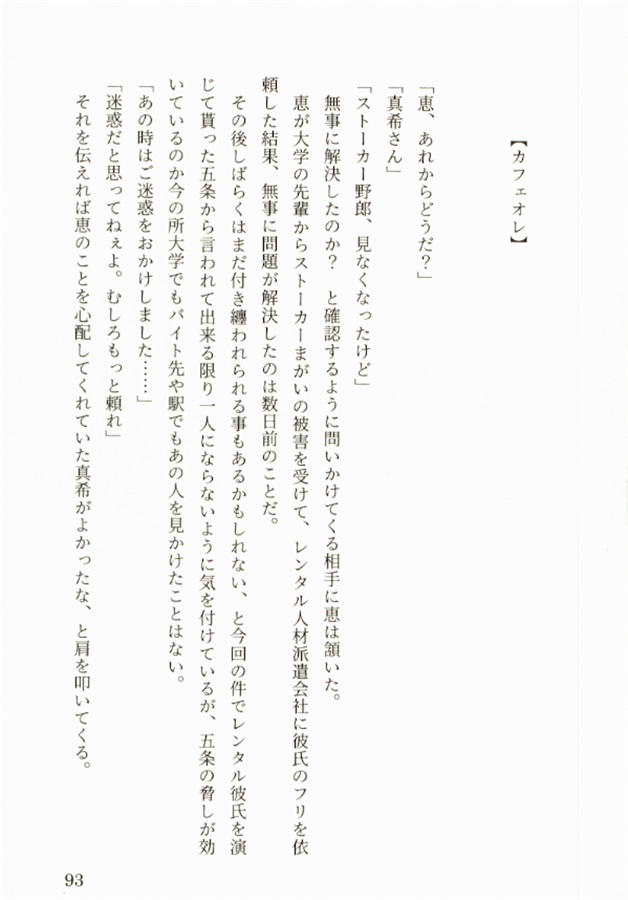 【カフェオレ】
「恵、あれからどうだ?」
「真希さん」
「ストーカー野郎、見なくなったけど」
無事に解決したのか?　と確認するように問いかけてくる相手に恵は頷いた。
恵が大学の先輩からストーカーまがいの被害を受けて、レンタル人材派遣会社に彼氏のフリを依
頼した結果、無事に問題が解決したのは数日前のことだ。
その後しばらくはまだ付き纏われられる事もあるかもしれない、と今回の件でレンタル彼氏を演
じて貰った五条から言われて出来る限り一人にならないように気を付けているが、五条の脅しが効
いているのか今の所大学でもバイト先や駅でもあの人を見かけたことはない。
「あの時はご迷惑をおかけしました……」
「迷惑だと思ってねぇよ。むしろもっと頼れ」
それを伝えれば恵のことを心配してくれていた真希がよかったな、と肩を叩いてくる。
93